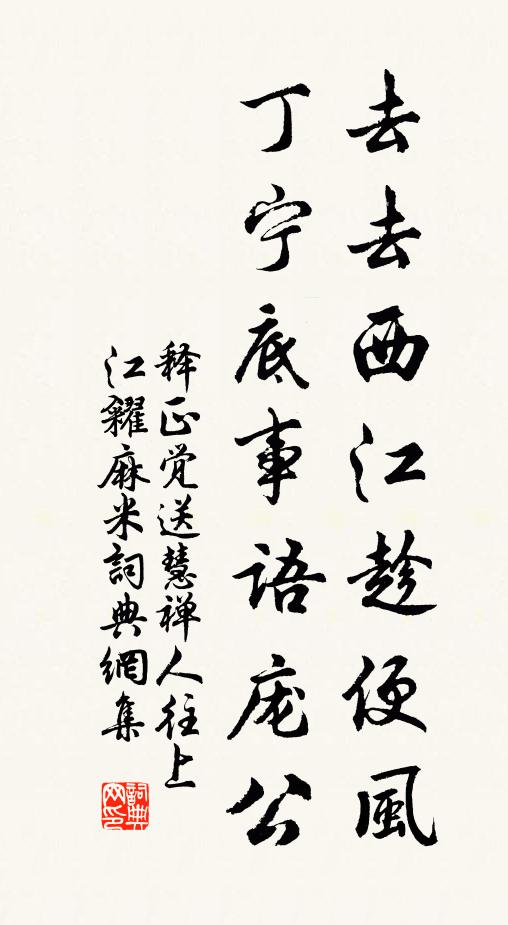 去去西江趁便風
丁宁底事語庞公
释正觉送慧禅人往上
江糴麻米詞典網集
詞典网印